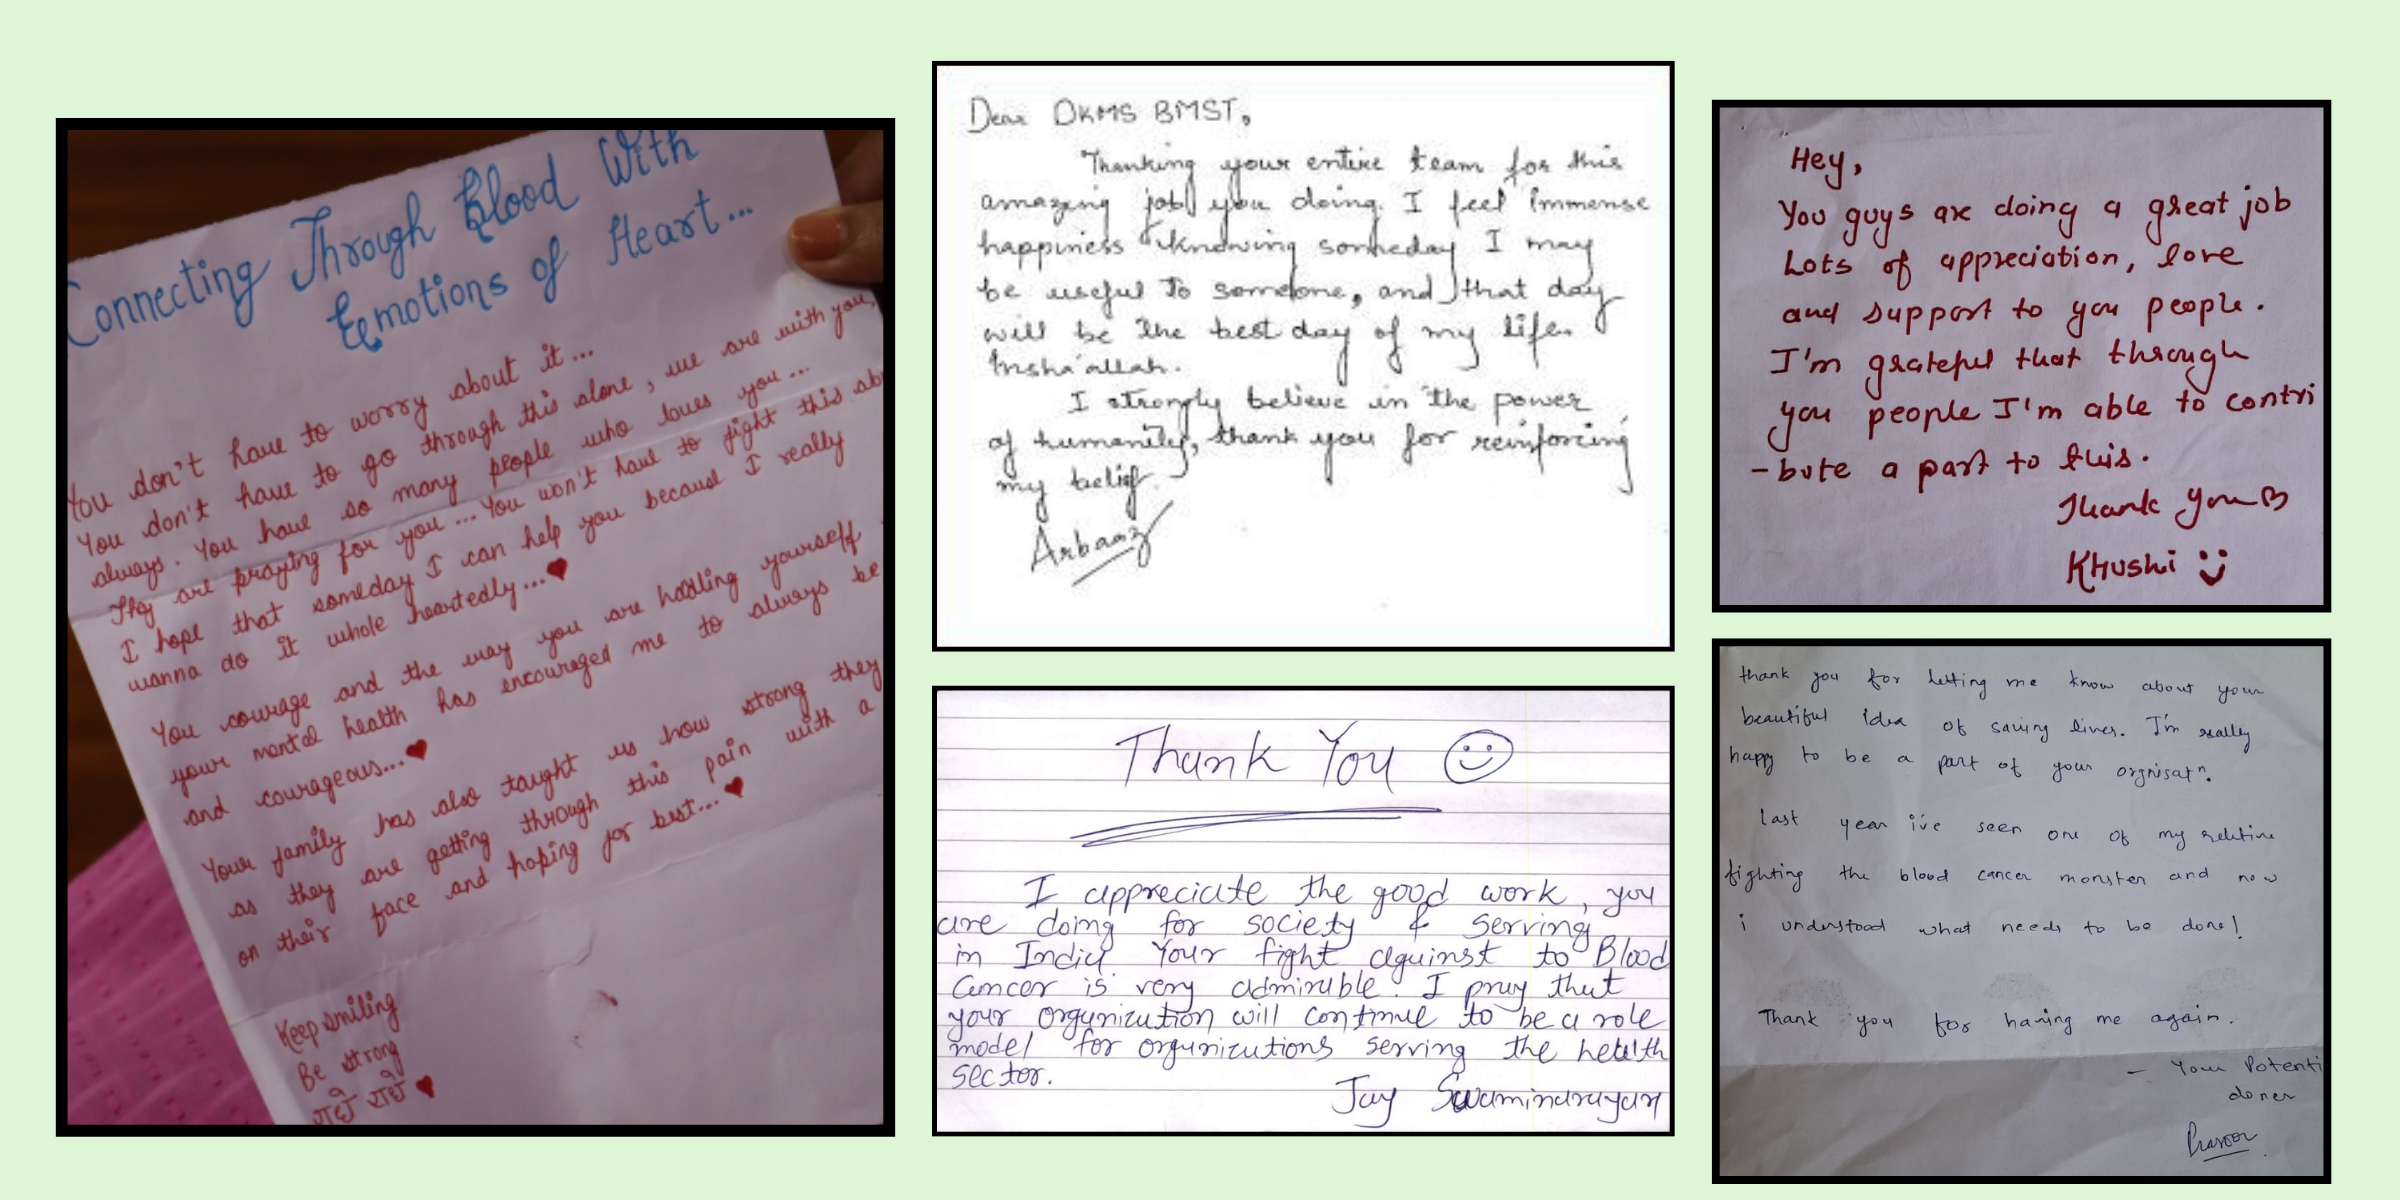 Connecting Through Blood With
Emotions of Heart...
You don't have to worry about it...
You don't have to go through this alone, we are with you,
always. You have so many people who loves you...
They are praying for you... You won't have to fight this
I hope that someday I can help you because I really
wanna do it whole heartedly...♥
You courage and the way you are hadling yourself
your mental health has encouraged me to always be
and courageous...♥
Your family has also taught us how strong they
as they are getting through this pain with a
on their face and hoping for best...♥
Keep smiling
Be strong
राधे राधे ♥
Dear DKMS BMST,
Thanking your entire team for this
amazing job you doing. I feel immense
happiness knowing someday I may
be useful to someone, and that day
will be the best day of my life.
Insha'allah.
I strongly believe in the power
of humanity, thank you for reinforcing
my belief.
Arbaaz
Thank You
I appreciate the good work, you
are doing for society & serving
in India. Your fight against to Blood
Cancer is very admirable. I pray that
your organization will continue to be a role
model for organizations serving the health
sector.
Jay Swaminarayan
Hey,
You guys are doing a great job
Lots of appreciation, love
and support to you people.
I'm grateful that through
you people I'm able to contri
-bute a part to this.
Thank you
Khushi
thank you for letting me know about your
beautiful idea of saving lives. I'm really
happy to be a part of your orgnisatn.
last year i've seen one of my relitive
fighting the blood cancer monster and now
i understood what needs to be done!
Thank you for having me again.
- Your Potenti
doner